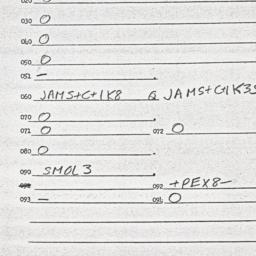 020
030 O
040 O
050 O
051 —
060 JAMS+C+1K8 & JAMS+C+1K3S
070 O
071 O 072 O
080 O
090 SMOL3
092 +PEX8—
093 — 096 O